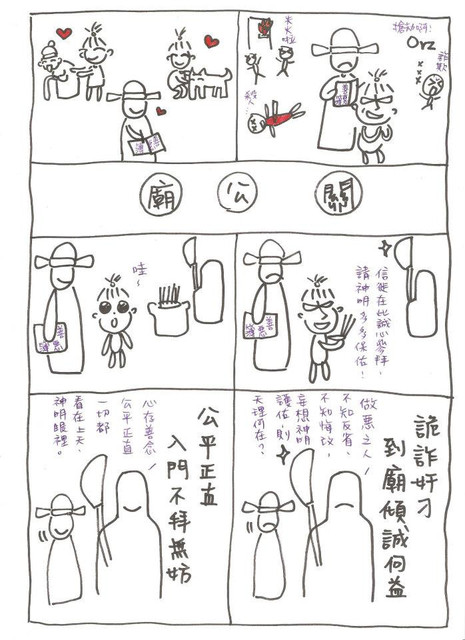 搶劫啊!
Orz
詐欺
關公廟
信徒在此誠心參拜,
請神明多多保佑!
善惡
簿
哇~
善惡
簿
詭詐奸刁
到廟傾誠何益
做惡之人,
不知反省、
不知悔改,
妄想神明
護佑,則
天理何在?
公平正直
入門不拜無妨
心存善念,
公平正直
一切都
看在上天、
神明眼裡。